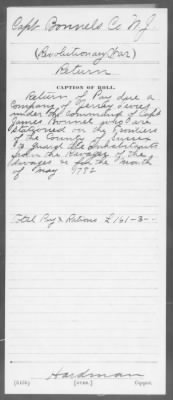 Capt. Bonnels Co N.J.
(Revolutionary War)
Return
CAPTION OF ROLL.
Return of Pay due a
Company of Jersey
under the Command of Capt
James Bonnel who are
stationed on the Frontiers
of the County of Sussex
to guard the Inhabitants
from the Ravages of the
Savages for the Month
of May 1782
Total Pay & Rations £161-3-
Hardman
[OVER.]
Copyist.